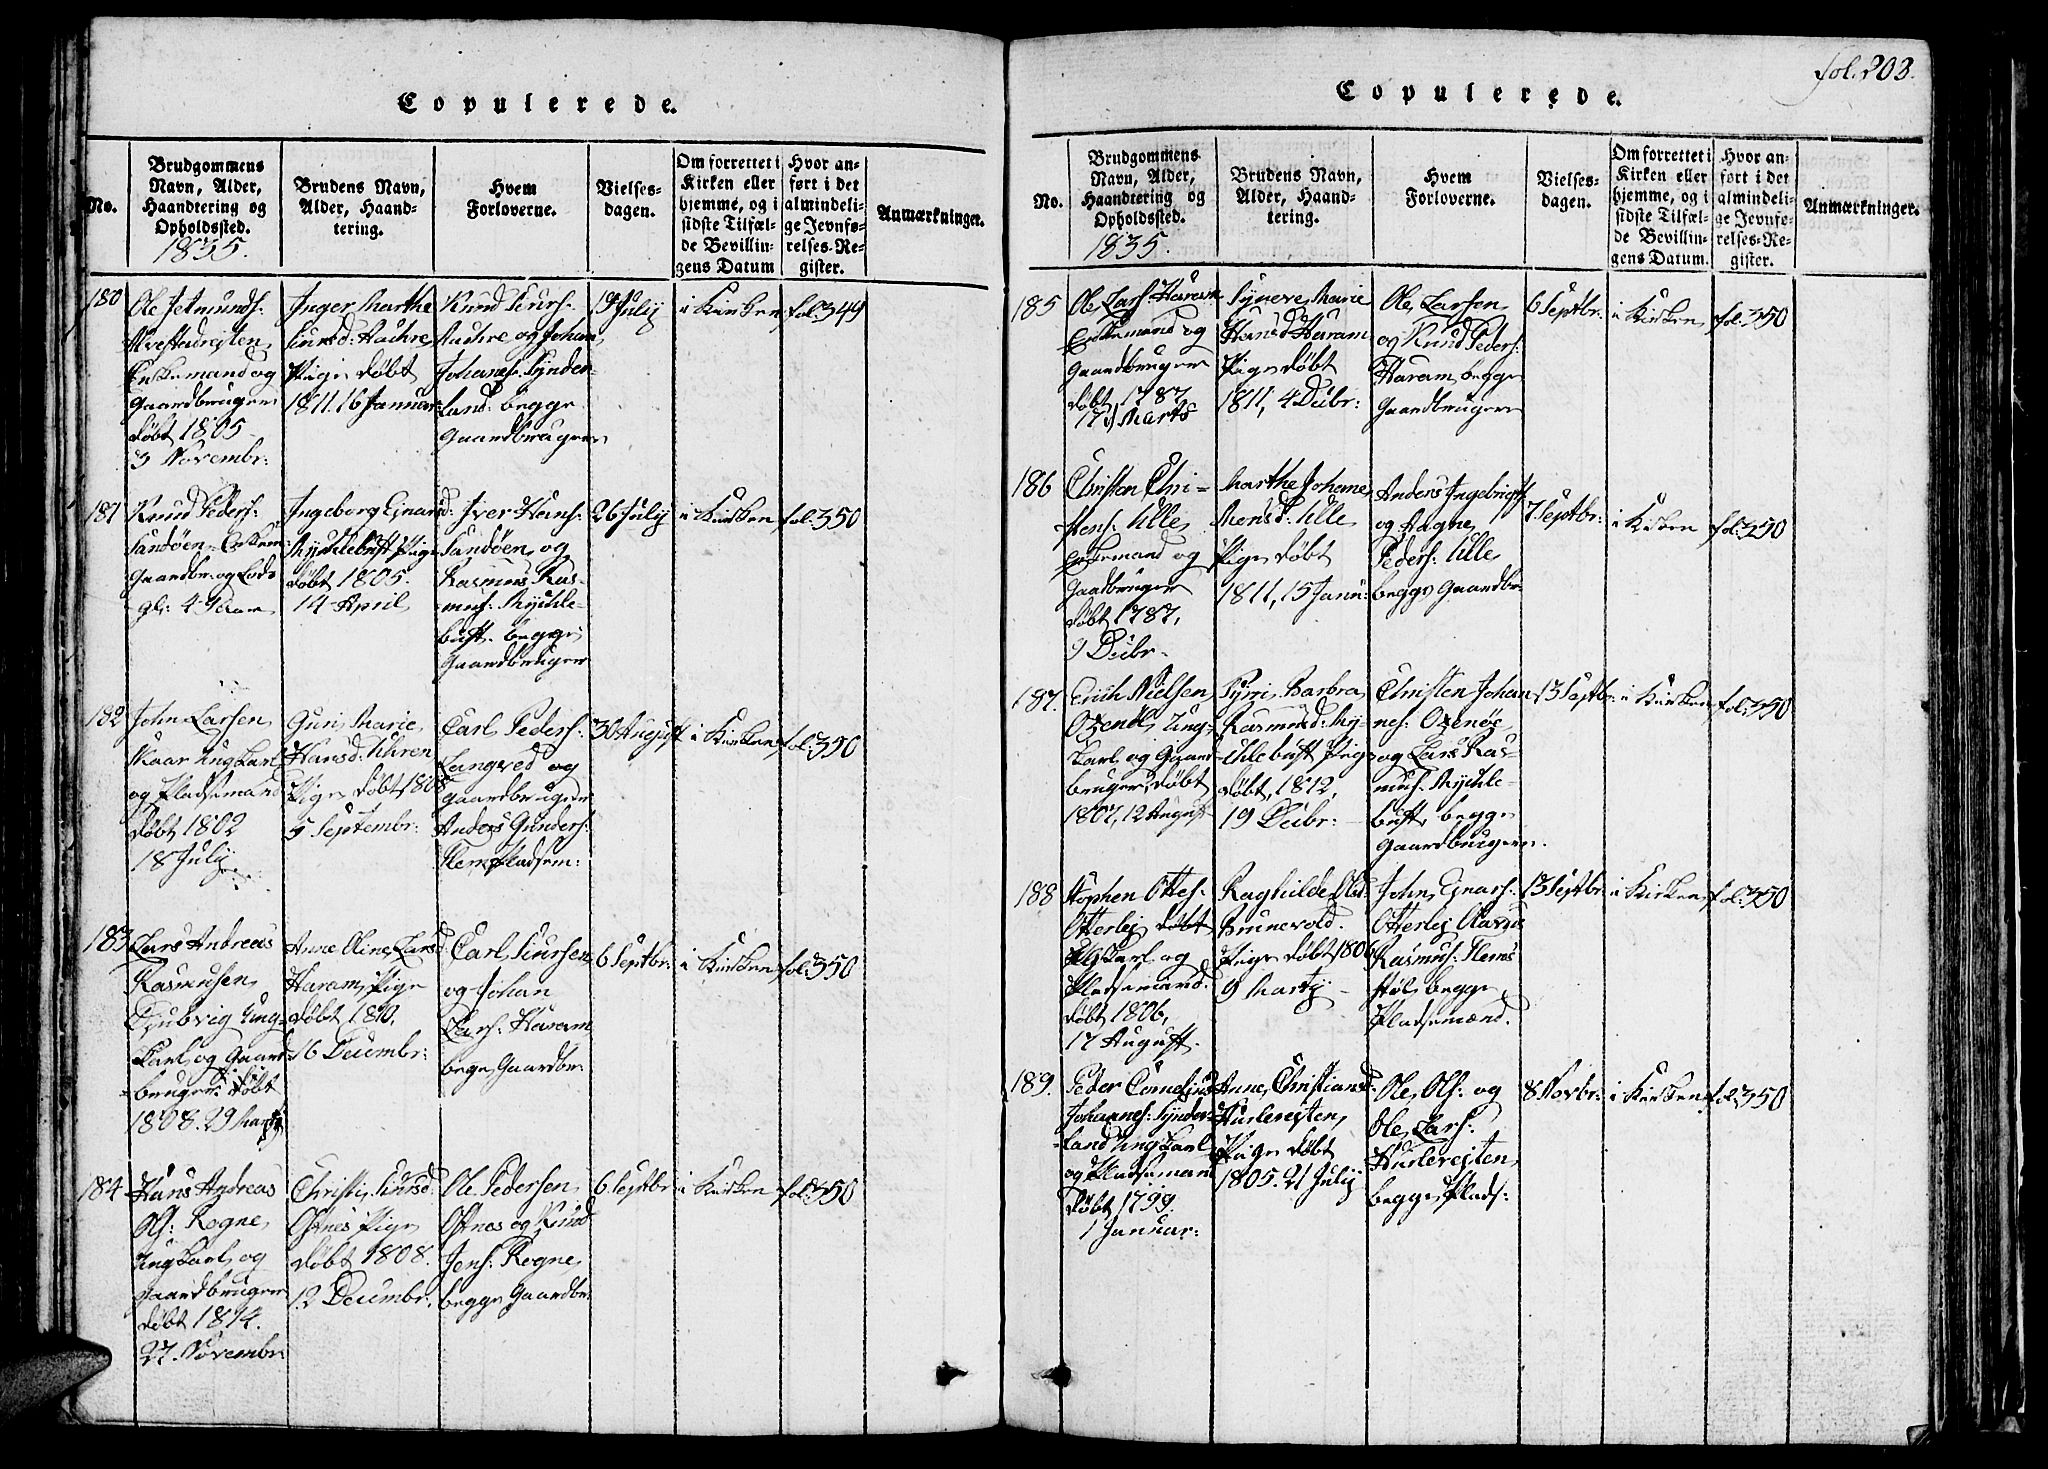 Copulerede.
No.
Brudgommens
Navn, Alder,
Haandtering og
Opholdssted.
1835.
Brudens Navn,
Alder, Haand-
tering.
Hvem
Forloverne.
Vielses-
dagen.
Om forrettet i
Kirken eller
hjemme, og i
sidste Tilfæl-
de Bevillin-
gens Datum
Hvor an-
ført i det
almindeli-
ge Jevnfø-
relses-Re-
gister.
Anmærkninger.
180
Ole Jetmunds:
Enkemand og
Gaardbruger
døbt 1805
3 Novembr:
Inger Marthe
Pige døbt
1811. 16 Januar
Knud
og Johan
Johanes: Synder-
land begge
Gaardbrugere
19 July
i Kirken
fol: 349
181
Knud Peders:
Sandøen Enkem:
Gaardbr: og Lods
gl: 4 Aar
Ingeborg Einarsd:
Myklebust Pige
døbt 1805.
14 April
Iver Hans:
Sandøen og
Rasmus Ras-
mus: Mykle-
bust begge
Gaardbruger
26 July
i Kirken
fol: 350
182
John Larsen
Skaar ungkarl
og Pladsemand
døbt 1802
18 July
Guri Marie
Hansd: Uhren
Pige døbt 1808
5 Septembr:
Carl Peders:
Langved og
Gaardbruger
Anders Gunders:
Hem Pladsem:
30 August
i Kirken
fol: 350
183
Lars Andreas
Rasmusen
Diubvig Ung-
karl og Gaard-
bruger døbt
1808. 29 Martj
Anne Oline Larsd:
Haram Pige
døbt 1810,
16 Decembr:
Carl Siursen
og Johan
Lars: Haram
begge Gaardbr:
6 Septbr:
i Kirken
fol: 350
184
Hans Andreas
Ols: Rogne
Ungkarl og
Gaardbruger
døbt 1814.
27. Novembr:
Christi Siursd:
Ostnes Pige
døbt 1808.
12 Decembr:
Ole Pedersen
Ostnes og Knud
Jens: Rogne
begge Gaardbr:
6 Septbr
i Kirken
fol: 350
fol: 203.
Copulerede.
No.
Brudgommens
Navn, Alder,
Haandtering og
Opholdssted.
1835.
Brudens Navn,
Alder, Haand-
tering.
Hvem
Forloverne.
Vielses-
dagen.
Om forrettet i
Kirken eller
hjemme, og i
sidste Tilfæl-
de Bevillin-
gens Datum.
Hvor an-
ført i det
almindeli-
ge Jevnfø-
relses-Re-
gister.
Anmærkninger.
185
Ole Lars: Haram
Enkemand og
Gaardbruger
døbt 1787
17 Marts
Synneve Marie
Hansd Haram
Pige døbt
1811, 4 Decbr:
Ole Larsen
og Knud Peders:
Haram begge
Gaardbrugere
6 Septbr:
i Kirken
fol: 350
186
Christen Chri-
stens: Ulle
Enkemand og
Gaardbruger
døbt 1787,
9 Decbr.
Marthe Johanne
Monsd: Ulle
Pige døbt
1811, 15 Janu:
Anders Ingebrigts
og Aagne
Peders: Ulle
begge Gaardbr:
7 Septbr:
i Kirken
fol: 350
187.
Erich Nielsen
Oxenøe Ung-
karl og Gaard-
bruger, døbt
1807, 12 August
Syrri Barbra
Rasmusd: My-
klebust Pige
døbt, 1812,
19 Decbr:
Christen Johan-
nes: Oxenøe
og Lars Ras-
mus: Mykle-
bust begge
Gaardbrugere.
13 Septbr:
i Kirken
fol: 350
188
Stephen Ottes:
Otterlej døbt
og
Pladsemand.
døbt 1806,
17 August.
Raghilde Olsd:
Brunevold.
Pige døbt 1806
9 Martj
John Einars:
Otterlej
Rasmus: Hems
støl begge
Pladsemænd.
13 Septbr:
i Kirken
fol: 350
189.
Peder Cornelius
Johannes: Synder-
land Ungkarl
og Pladsemand
døbt 1799.
1 Januar:
Anne Christiansd:
Hurlerejten,
Pige døbt
1805. 21 July
Ole Ols: og
Ole Lars:
Hurlerejten
begge Plads:
8 Novbr:
i Kirken
fol: 350